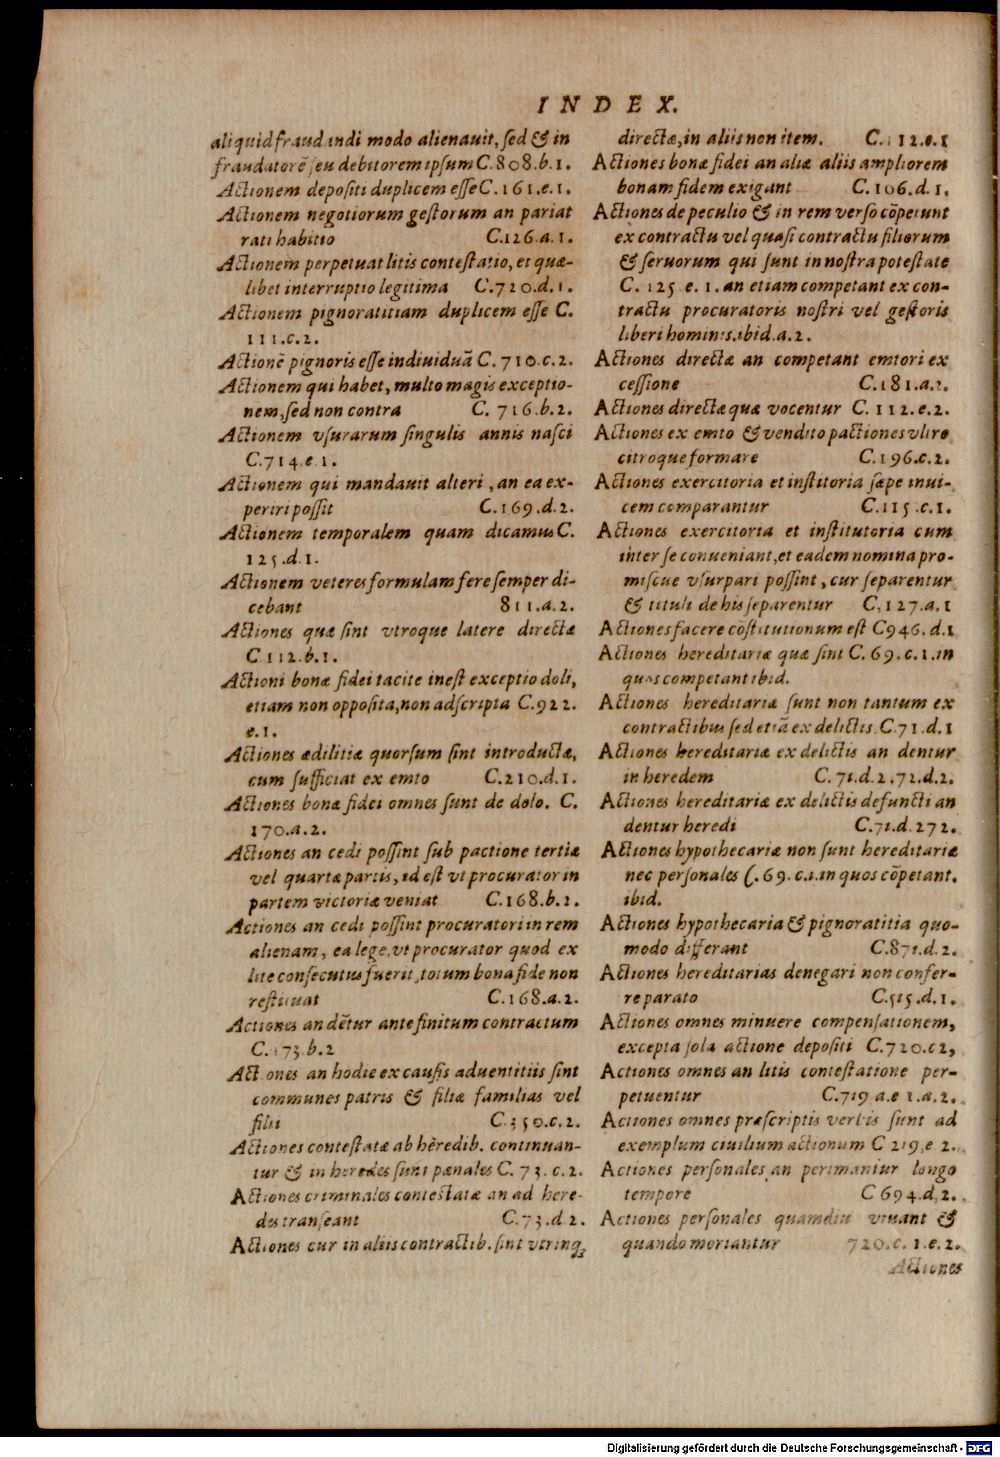 INDEX.
aliquid fraudandi modo alienauit, sed & in
fraudatorē seu debitorem ipsum C.808.b.1.
Actionem depositi duplicem esse C.161.e.1.
Actionem negotiorum gestorum an pariat
rati habitio C.126.a.1.
Actionem perpetuat litis contestatio, et quæ-
libet interruptio legitima C.720.d.1.
Actionem pignoratitiam duplicem esse C.
111.c.2.
Actionē pignoris esse indiuiduā C.710.c.2.
Actionem qui habet, multo magis exceptio-
nem, sed non contra C. 716.b.2.
Actionem vsurarum singulis annis nasci
C.714.e.1.
Actionem qui mandauit alteri, an ea ex-
periri possit C.169.d.2.
Actionem temporalem quam dicamus C.
125.d.1.
Actionem veteres formulam fere semper di-
cebant 811.a.2.
Actiones quæ sint vtroque latere directæ
C 112.b.1.
Actioni bonæ fidei tacite inest exceptio doli,
etiam non opposita, non adscripta C.922.
e.1.
Actiones ædilitiæ quorsum sint introductæ,
cum sufficiat ex emto C.210.d.1.
Actiones bonæ fidei omnes sunt de dolo. C.
170.a.2.
Actiones an cedi possint sub pactione tertiæ
vel quartæ partis, id est vt procurator in
partem victoriæ veniat C.168.b.2.
Actiones an cedi possint procuratori in rem
alienam, ea lege, vt procurator quod ex
lite consecutus fuerit, totum bona fide non
restituat C.168.a.2.
Actiones an dētur ante finitum contractum
C.173.b.2
Act ones an hodie ex causis aduentitiis sint
communes patris & filiæ familias vel
filii C.350.c.2.
Actiones contestatæ ab hèredib. continuan-
tur & in heredes sunt pænales C.73.c.2.
Actiones criminales contestatæ an ad here-
des transeant C.73.d.2.
Actiones cur in aliis contractib. sint vtrinq;
directæ, in aliis non item. C.112.e.1
Actiones bonæ fidei an aliæ aliis ampliorem
bonam fidem exigant C.106.d.1.
Actiones de peculio & in rem verso cōpetunt
ex contractu vel quasi contractu filiorum
& seruorum qui sunt in nostra potestate
C. 125.e.1. an etiam competant ex con-
tractu procuratoris nostri vel gestoris
liberi hominis. ibid.a.2.
Actiones directæ an competant emtori ex
cessione C.181.a.2.
Actiones directæ quæ vocentur C. 112.e.2.
Actiones ex emto & vendito pactiones vltro
citroque formare C.196.c.2.
Actiones exercitoria et institoria sæpe inui-
cem comparantur C.115.c.1.
Actiones exercitoria et institutoria cum
inter se conueniant, et eadem nomina pro-
miscue vsurpari possint, cur separentur
& tituli de his separentur C,127.a.1
Actiones facere cōstitutionum est C946.d.1
Actiones hereditariæ quæ sint C. 69.c.1.in
quos competant ibid.
Actiones hereditariæ sunt non tantum ex
contractibus sed etiā ex delictis. C.71.d.1
Actiones hereditariæ ex delictis an dentur
in heredem C. 71.d.2.72.d.2.
Actiones hereditariæ ex delictis defuncti an
dentur heredi C.71.d.272.
Actiones hypothecariæ non sunt hereditariæ
nec personales C.69.c.1.in quos cōpetant.
ibid.
Actiones hypothecaria & pignoratitia quo-
modo differant C.871.d.2.
Actiones hereditarias denegari non confer-
re parato C.515.d.1.
Actiones omnes minuere compensationem,
excepta sola actione depositi C.720.c2,
Actiones omnes an litis contestatione per-
petuentur C.719 a.e 1.a.2.
Actiones omnes præscriptis verbis sunt ad
exemplum ciuilium actionum C 219.e 2.
Actiones personales an perimantur longo
tempore C 694.d,2.
Actiones personales quamdiu viuant &
quando moriantur 720.c.1.e.2.
Actiones
Digitalisierung gefördert durch die Deutsche Forschungsgemeinschaft - DFG